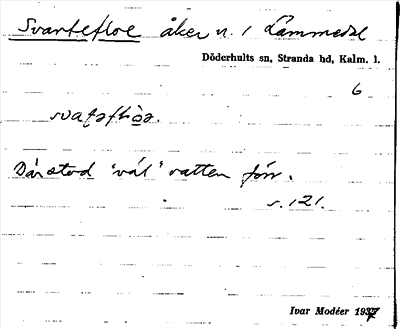 Svartefloe åker n. 1 Lämmedal
Döderhults sn, Stranda hd, Kalm. l.
6
Där stod "väl" vatten förr.
s. 121.
Ivar Modéer 1937